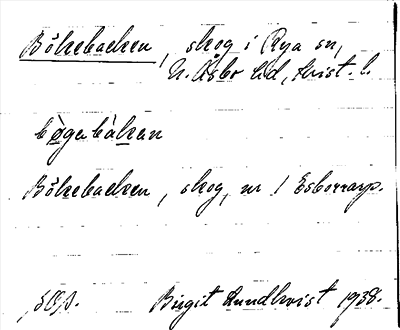 Bökebacken, skog i Rya sn,
N. Åsbo hd, Krist. l.
bøgabàkan
Bökebacken, skog, nr 1 Esborrarp.
Birgit Lundkvist 1938.